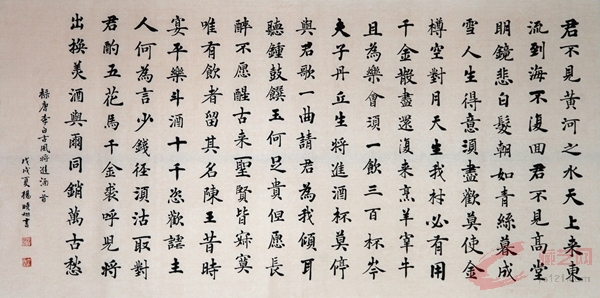 君不見黃河之水天上來東
流到海不復回君不見高堂
明鏡悲白髮朝如青絲暮成
雪人生得意須盡歡莫使金
樽空對月天生我材必有用
千金散盡還復來烹羊宰牛
且為樂會須一飲三百杯岑
夫子丹丘生將進酒杯莫停
與君歌一曲請君為我傾耳
聽鍾鼓饌玉何足貴但愿長
醉不愿醒古來聖賢皆寂寞
唯有飲者留其名陳王昔時
宴平樂斗酒十千恣歡謔主
人何為言少錢徑須沽取對
君酌五花馬千金裘呼兒將
出換美酒與爾同銷萬古愁
錄唐李白古風將進酒一首
戊戌夏楊書